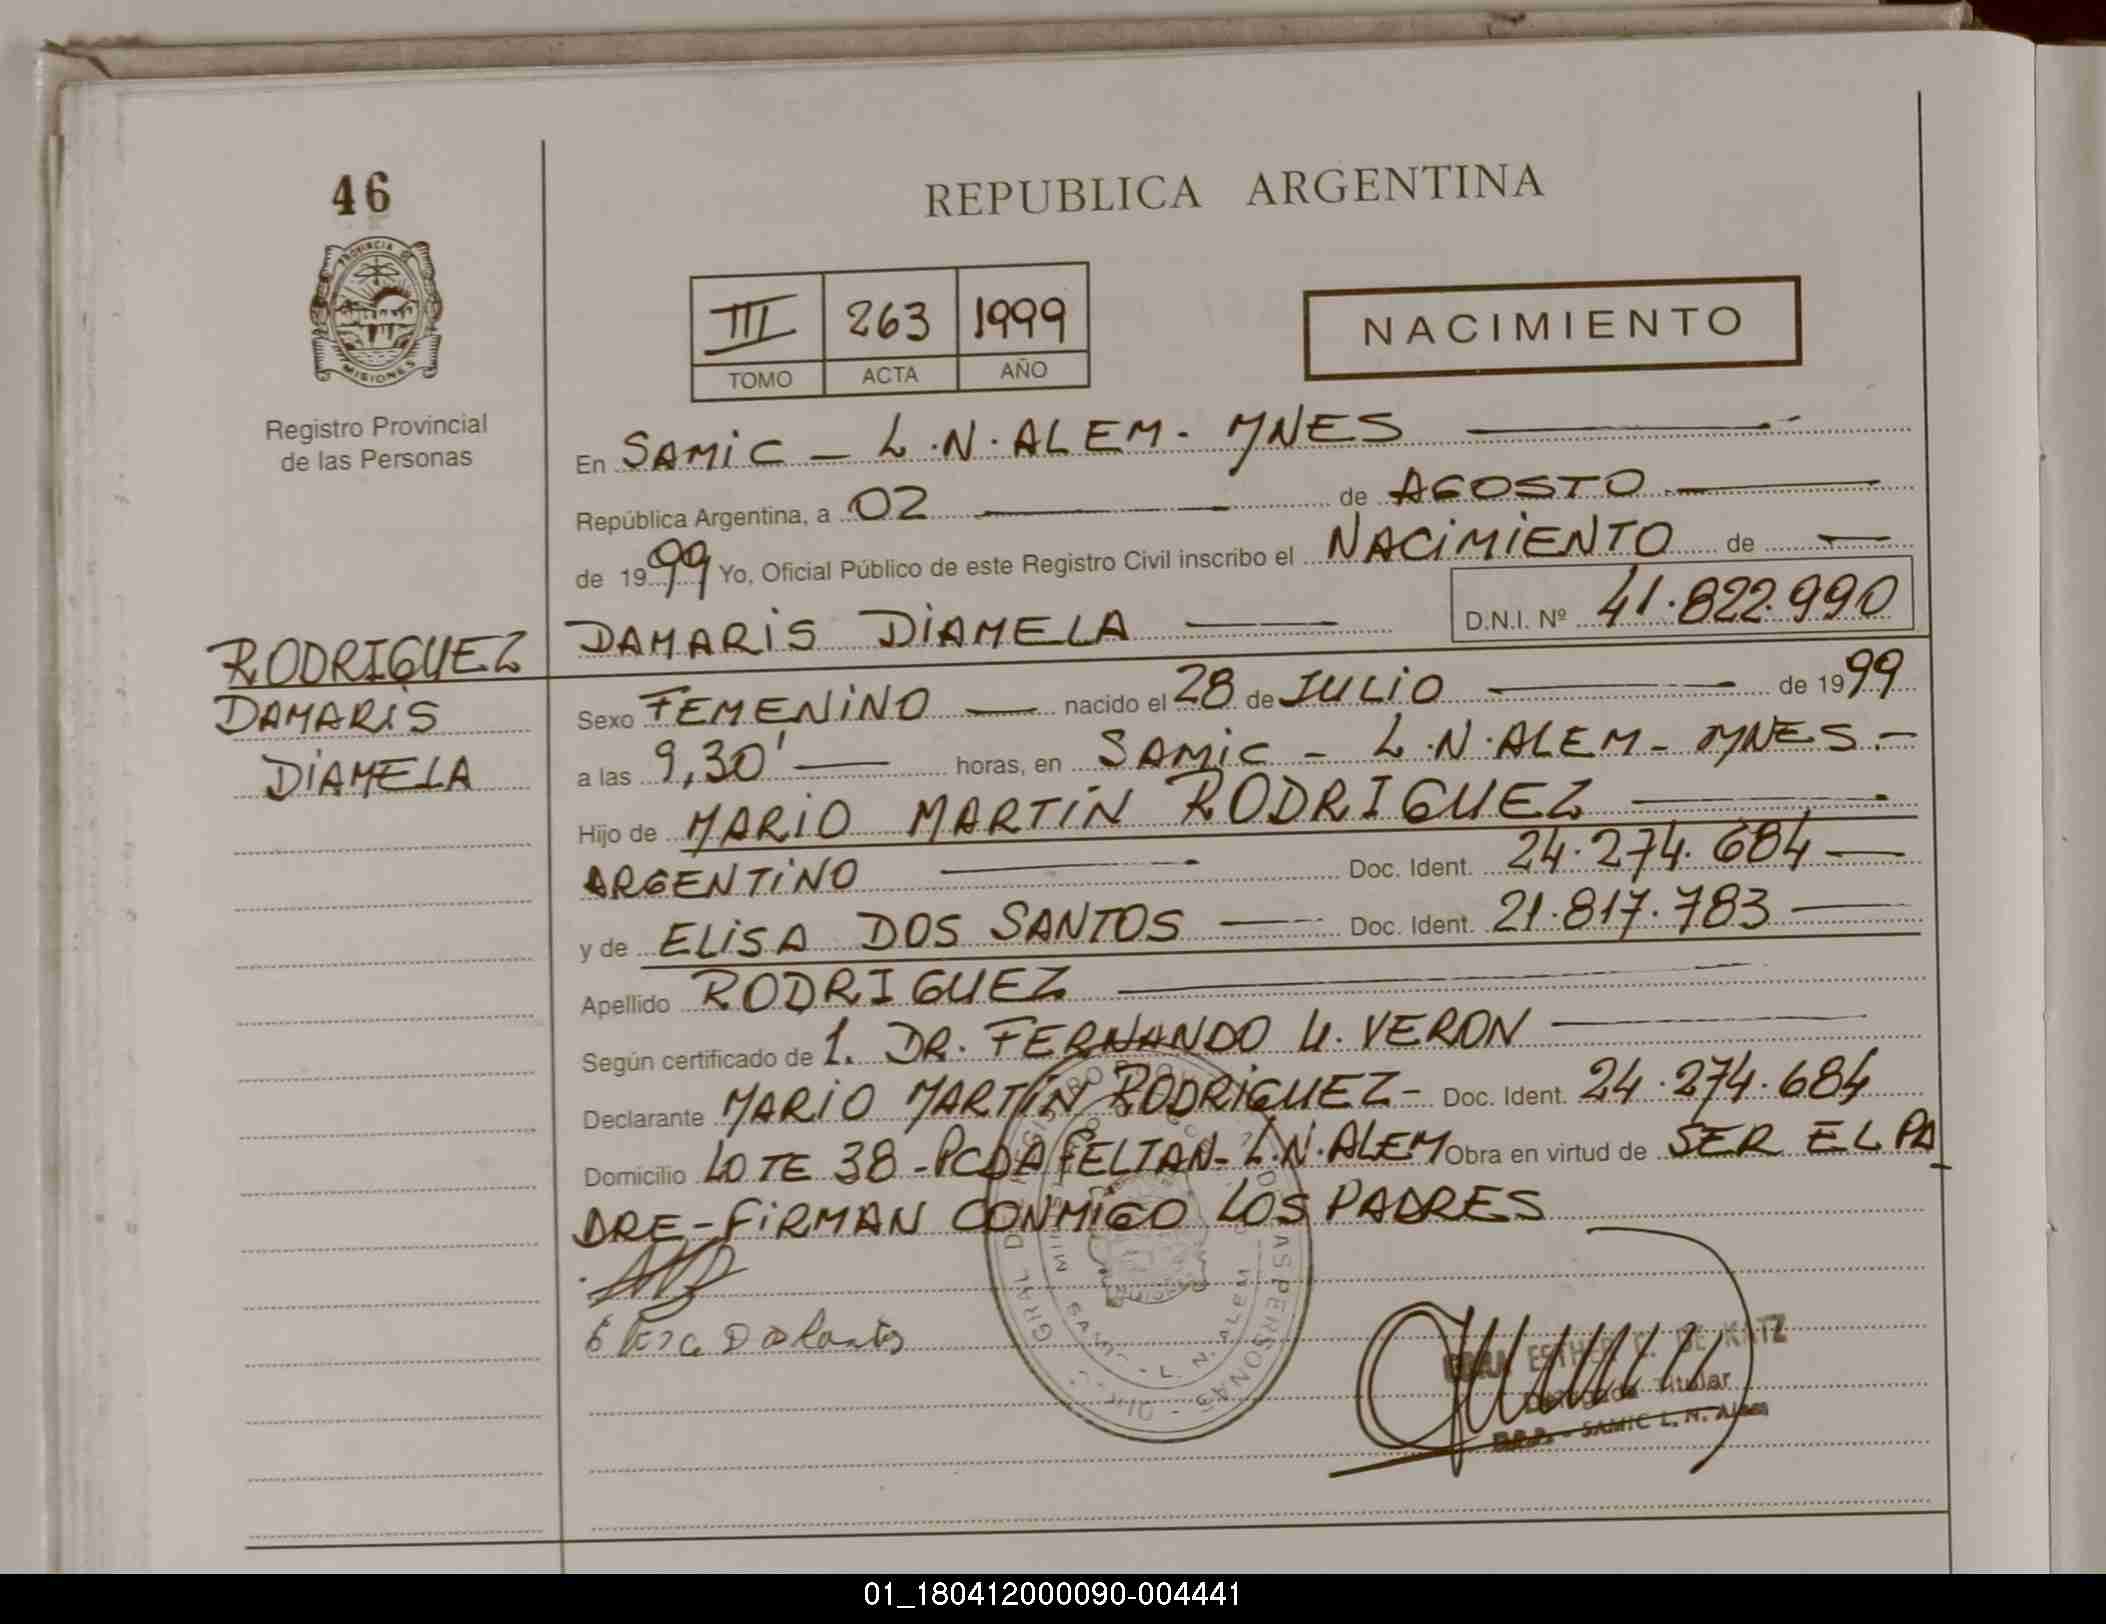 46
REPUBLICA ARGENTINA
PROVINCIA DE
MISIONES
III 263 1999
TOMO ACTA AÑO
NACIMIENTO
Registro Provincial
de las Personas
En SAMIC - L.N. ALEM - MNES
República Argentina, a 02 de AGOSTO
de 1999 Yo, Oficial Público de este Registro Civil inscribo el NACIMIENTO de
DAMARIS DIAMELA D.N.I. Nº 41.822.990
RODRIGUEZ
DAMARIS
DIAMELA
Sexo FEMENINO nacido el 28 de JULIO de 1999
a las 9,30' horas, en SAMIC - L.N. ALEM - MNES.-
Hijo de MARIO MARTIN RODRIGUEZ
ARGENTINO Doc. Ident. 24.274.684
y de ELISA DOS SANTOS Doc. Ident. 21.817.783
Apellido RODRIGUEZ
Según certificado de 1. DR. FERNANDO U. VERON
Declarante MARIO MARTIN RODRIGUEZ - Doc. Ident. 24.274.684
Domicilio LOTE 38 - PCDA FELTAN - L.N. ALEM Obra en virtud de SER EL PA
DRE - FIRMAN CONMIGO LOS PADRES
ESTHER DE KATZ
Delegada Titular
SAMIC L. N. Alem
01_180412000090-004441